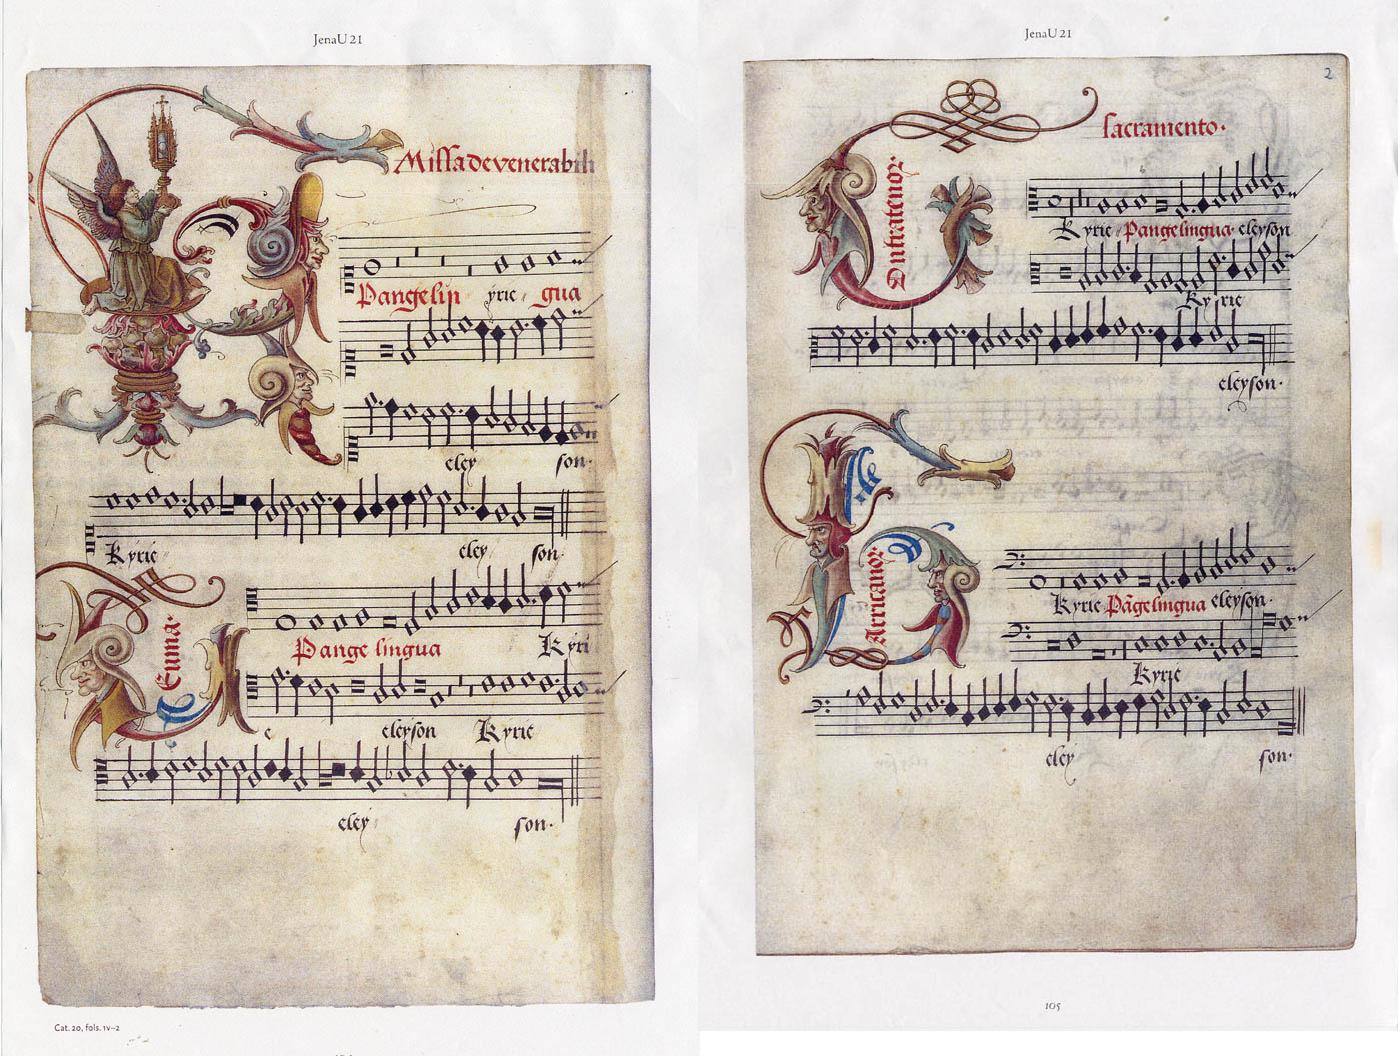 JenaU21
Missa de venerabili
Pange lin yrie gua
eley son.
Kyrie eley son.
Tenura.
Pange lingua Kyri
e eleyson Kyrie
eley son.
Cat. 20, fols. 1v–2
JenaU21
2
sacramento.
Contratenor
Kyrie Pange lingua eleyson
Kyrie
eleyson.
Barricanor
Kyrie Pãge lingua eleyson.
Kyrie
eley son.
105